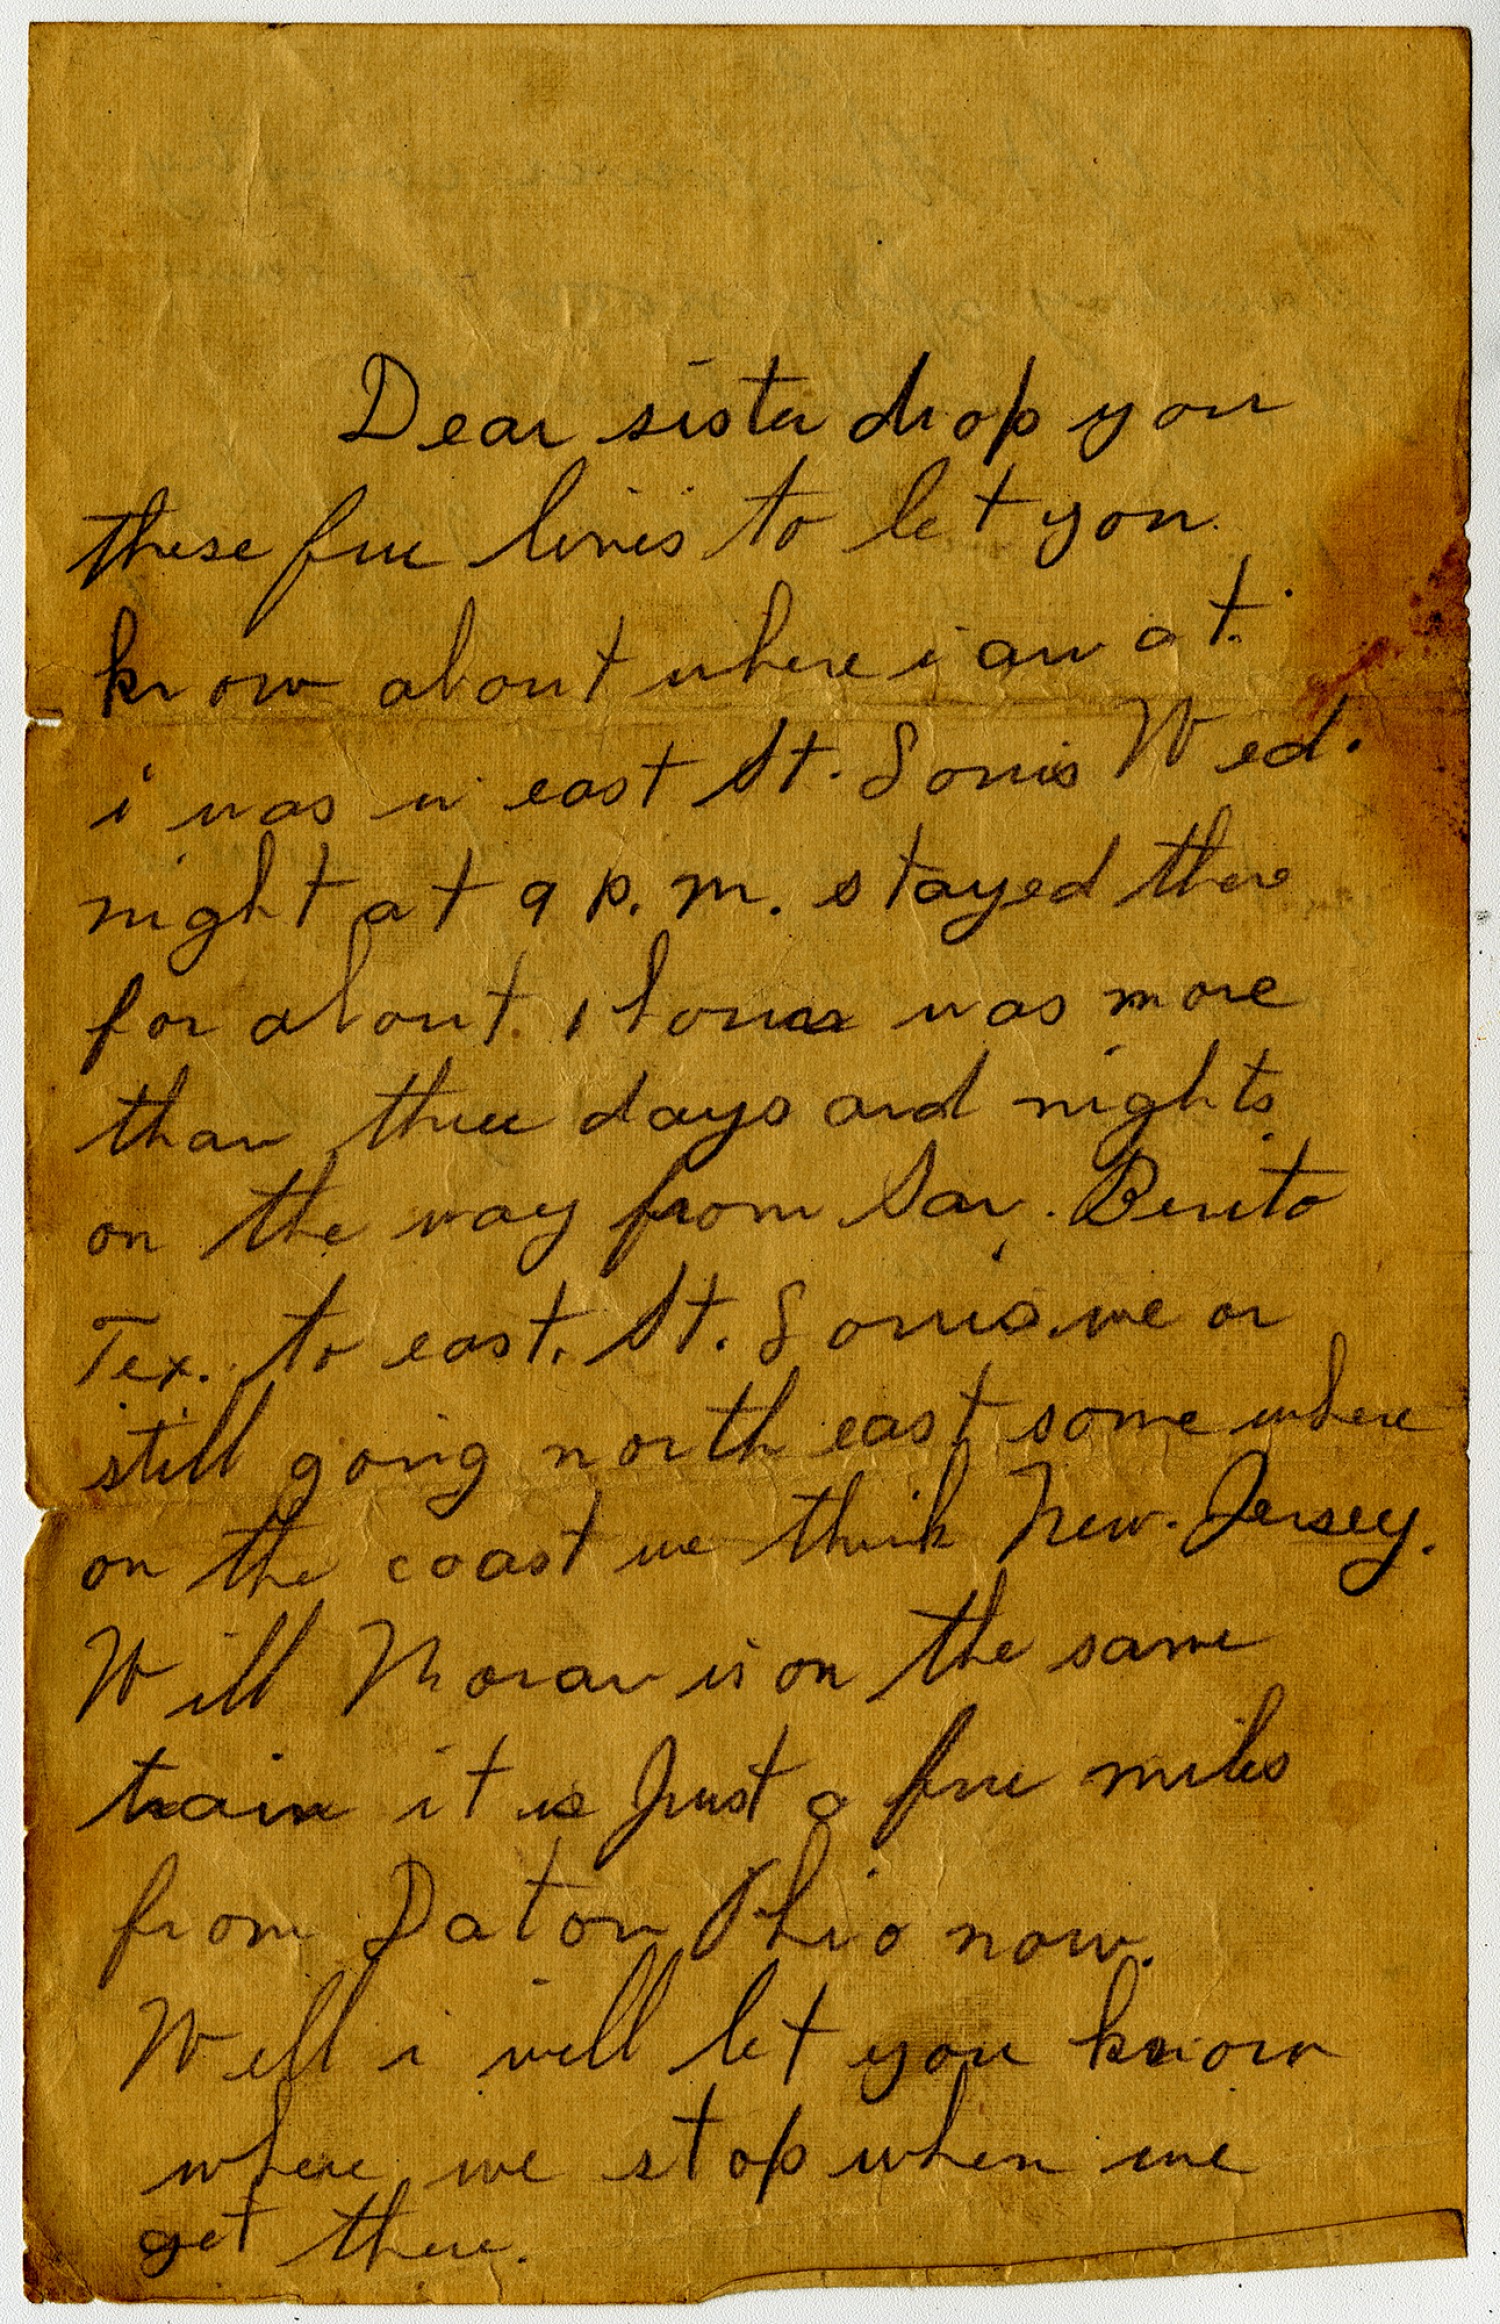 Dear sister drop you
these few lines to let you
know about where i am at.
i was in east St. Louis Wed.
night at 9 p.m. stayed there
for about 1 hour was more
than three days and nights
on the way from San. Benito
Tex. to east. St. Louis we or
still going north east some where
on the coast we think New. Jersey.
Will Moran is on the same
train it is Just a few miles
from Daton Ohio now.
Well i will let you know
where we stop when we
get there.